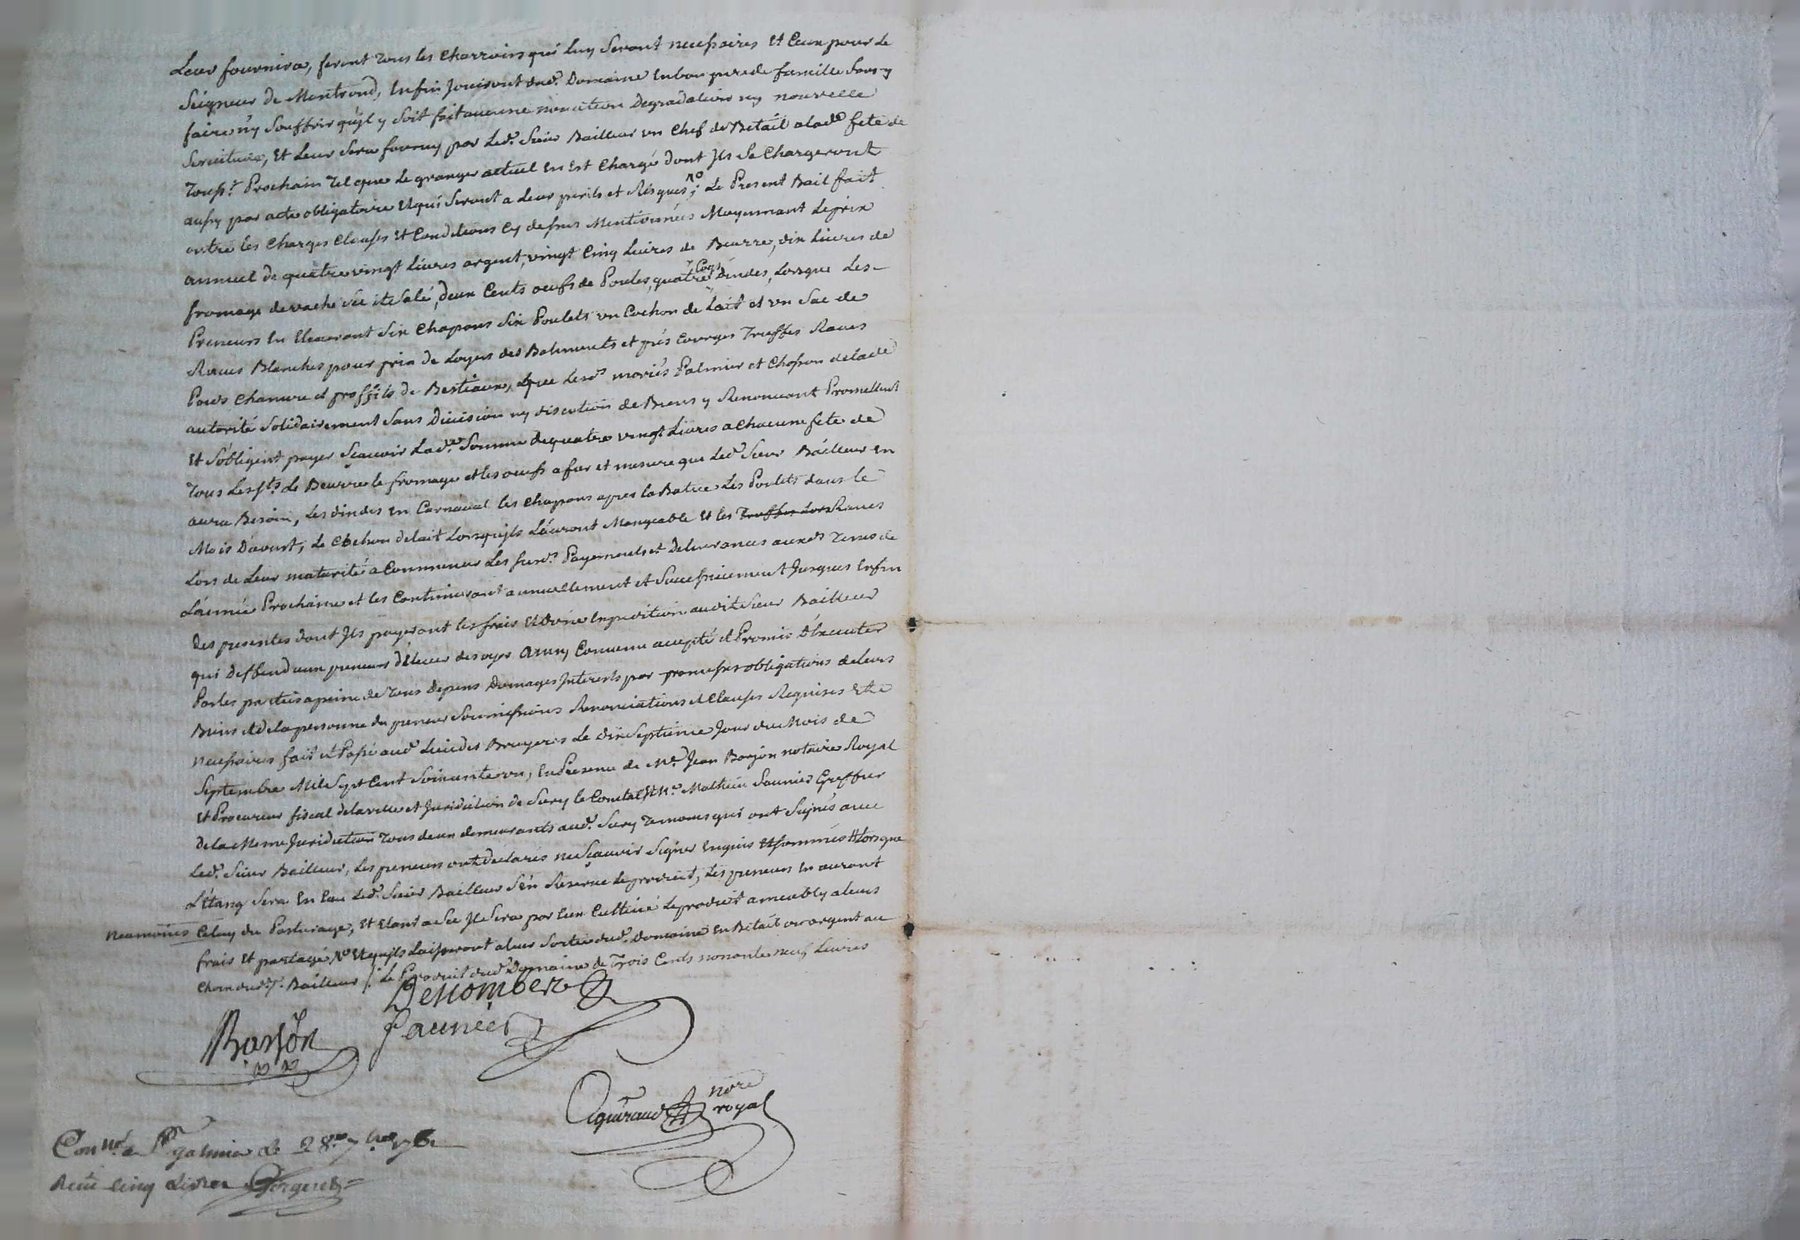 Leur fournira, feront tous les charrois qui luy seront necessaires et ceux pour le
Seigneur de Montrond, Enfin Jouiront dud. Domaine En bon pere de famille sans y
faire n'y souffrir qu'il y soit fait aucune Degradation ny nouvelle
Servitude, Et Leur sera fourny par Led. Sieur Bailleur un Chef de Betail a lad. fete de
Touss.t Prochain Tel que Le granger actuel En Est Chargé dont Ils Se Chargeront
aussy par acte obligatoire Et qui seront a Leur perils et Risques; Le Present Bail fait
outre les Charges Clauses Et Conditions Cy dessus Mentionnées Moyennant Le prix
annuel de quatre vingt Livres argent, vingt Cinq Livres de Beurre, dix Livres de
fromage de vache sec et salé, deux Cents oeufs de Poules, quatre Coqs dindes, Lorsque Les
Preneurs En Eleveront Six Chapons Six Poulets un Cochon de Lait et un Sac de
Raves Blanches pour prix de Loyers des Batiments et prés Courges Truffes Raves
Poids Chanvre et proffits de Bestiaux, Lque Lesd. mariés Palmier et Chosson de lad.
autorité Solidairement Sans Division ny discution de Biens y Renoncant Promettent
Et S'obligent payer Sçavoir Lad. Somme de quatre vingt Livres a Chacune fete de
Tous Les Sts Le Beurre le fromage et les oeufs a fur et mesure que Led. Sieur Bailleur En
aura Besoin, Les dindes En Carnaval les Chapons apres la Batue Les Poulets dans le
Mois D'aoust, Le Cochon de lait Lorsqu'ils L'auront Mangeable Et les Truffes Lors Raves
Lors de Leur maturité a Commencer Les susd. Payements et Delivrances auxd. Termes de
L'année Prochaine et les Continueront annuellement et Successivement Jusques Enfin
Des presentes dont Ils payeront les frais Et d'une Expedition audit Sieur Bailleur
qui deffend aux preneurs d'Elever des oyes Ainsy Convenu accepté et Promis D'Executer
Par les parties a peine de Tous Depens Domages Interests par promesses obligations de leurs
Biens Et de la personne du preneur Soumissions Renonciations et Clauses Requises Et
Necessaires fait et Passé aud. Lieu des Bruyeres Le dix Septieme Jour du Mois de
Septembre Mil Sept Cent Soixante un, En Presence de Me Jean Barjon notaire Royal
Et Procureur fiscal de la ville et Juridiction de Sury le Comtal Et Me Mathieu Saunier Greffier
De la Meme Juridiction Tous deux demeurants aud. Sury Temoins qui ont Signés avec
Led. Sieur Bailleur, Les preneurs ont declarés ne Sçavoir Signer Enquis Et sommés Lorsque
L'Etang Sera En Eau Led. Sieur Bailleur S'en Reserve le produit, Les preneurs En auront
Neanmoins Celuy du Pasturage, Et Etant a Sec Il Sera par Eux Cultivé Le produit a moitié a leurs
frais Et partagé Et qu'ils Laisseront a leur Sortie dud. Domaine En Betail ou argent au
Choix dud. Sr. Bailleur / Le Produit dud. Domaine de Trois Cents nonante neuf Livres
Desiombere
Barjon
Saunier
nore
royal
Con.lé a St galmier le 28me 7bre
Recu Cinq Livres